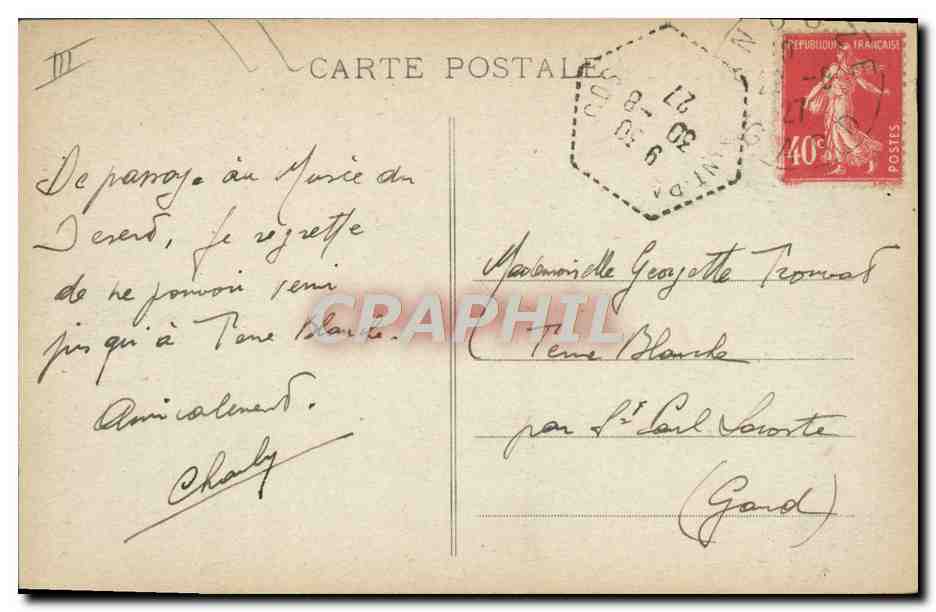 III
CARTE POSTALE
REPUBLIQUE FRANÇAISE
40c
POSTES
9 30
30 -8
27
De passage au Musée du
Desert, je regrette
de ne pouvoir venir
jusqu'à Terre Blanche.
Amicalement.
Charly
Mademoiselle Georgette Trouvat
Terre Blanche
par St Paul Lacoste
(Gard)
CPAPHIL